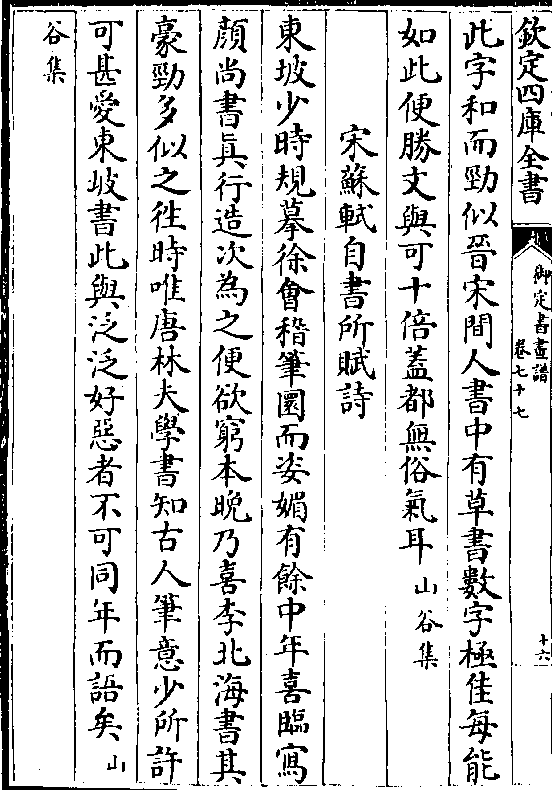 欽定四庫全書
御定書畫譜
卷七十七
十六
此字和而勁似晉宋間人書中有草書數字極佳每能
如此便勝文與可十倍蓋都無俗氣耳山谷集
宋蘇軾自書所賦詩
東坡少時規摹徐會稽筆圜而姿媚有餘中年喜臨寫
顏尚書真行造次為之便欲窮本晚乃喜李北海書其
豪勁多似之徃時唯唐林夫學書知古人筆意少所許
可甚愛東坡書此與泛泛好惡者不可同年而語矣山
谷集